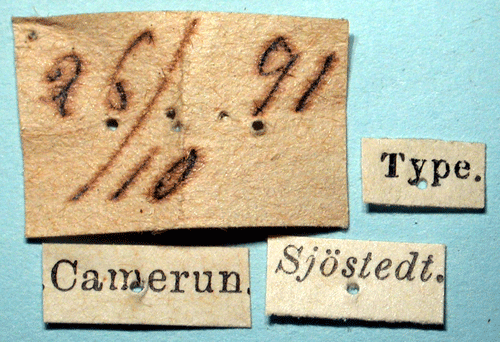 26/10 91
Type.
Camerun.
Sjöstedt.